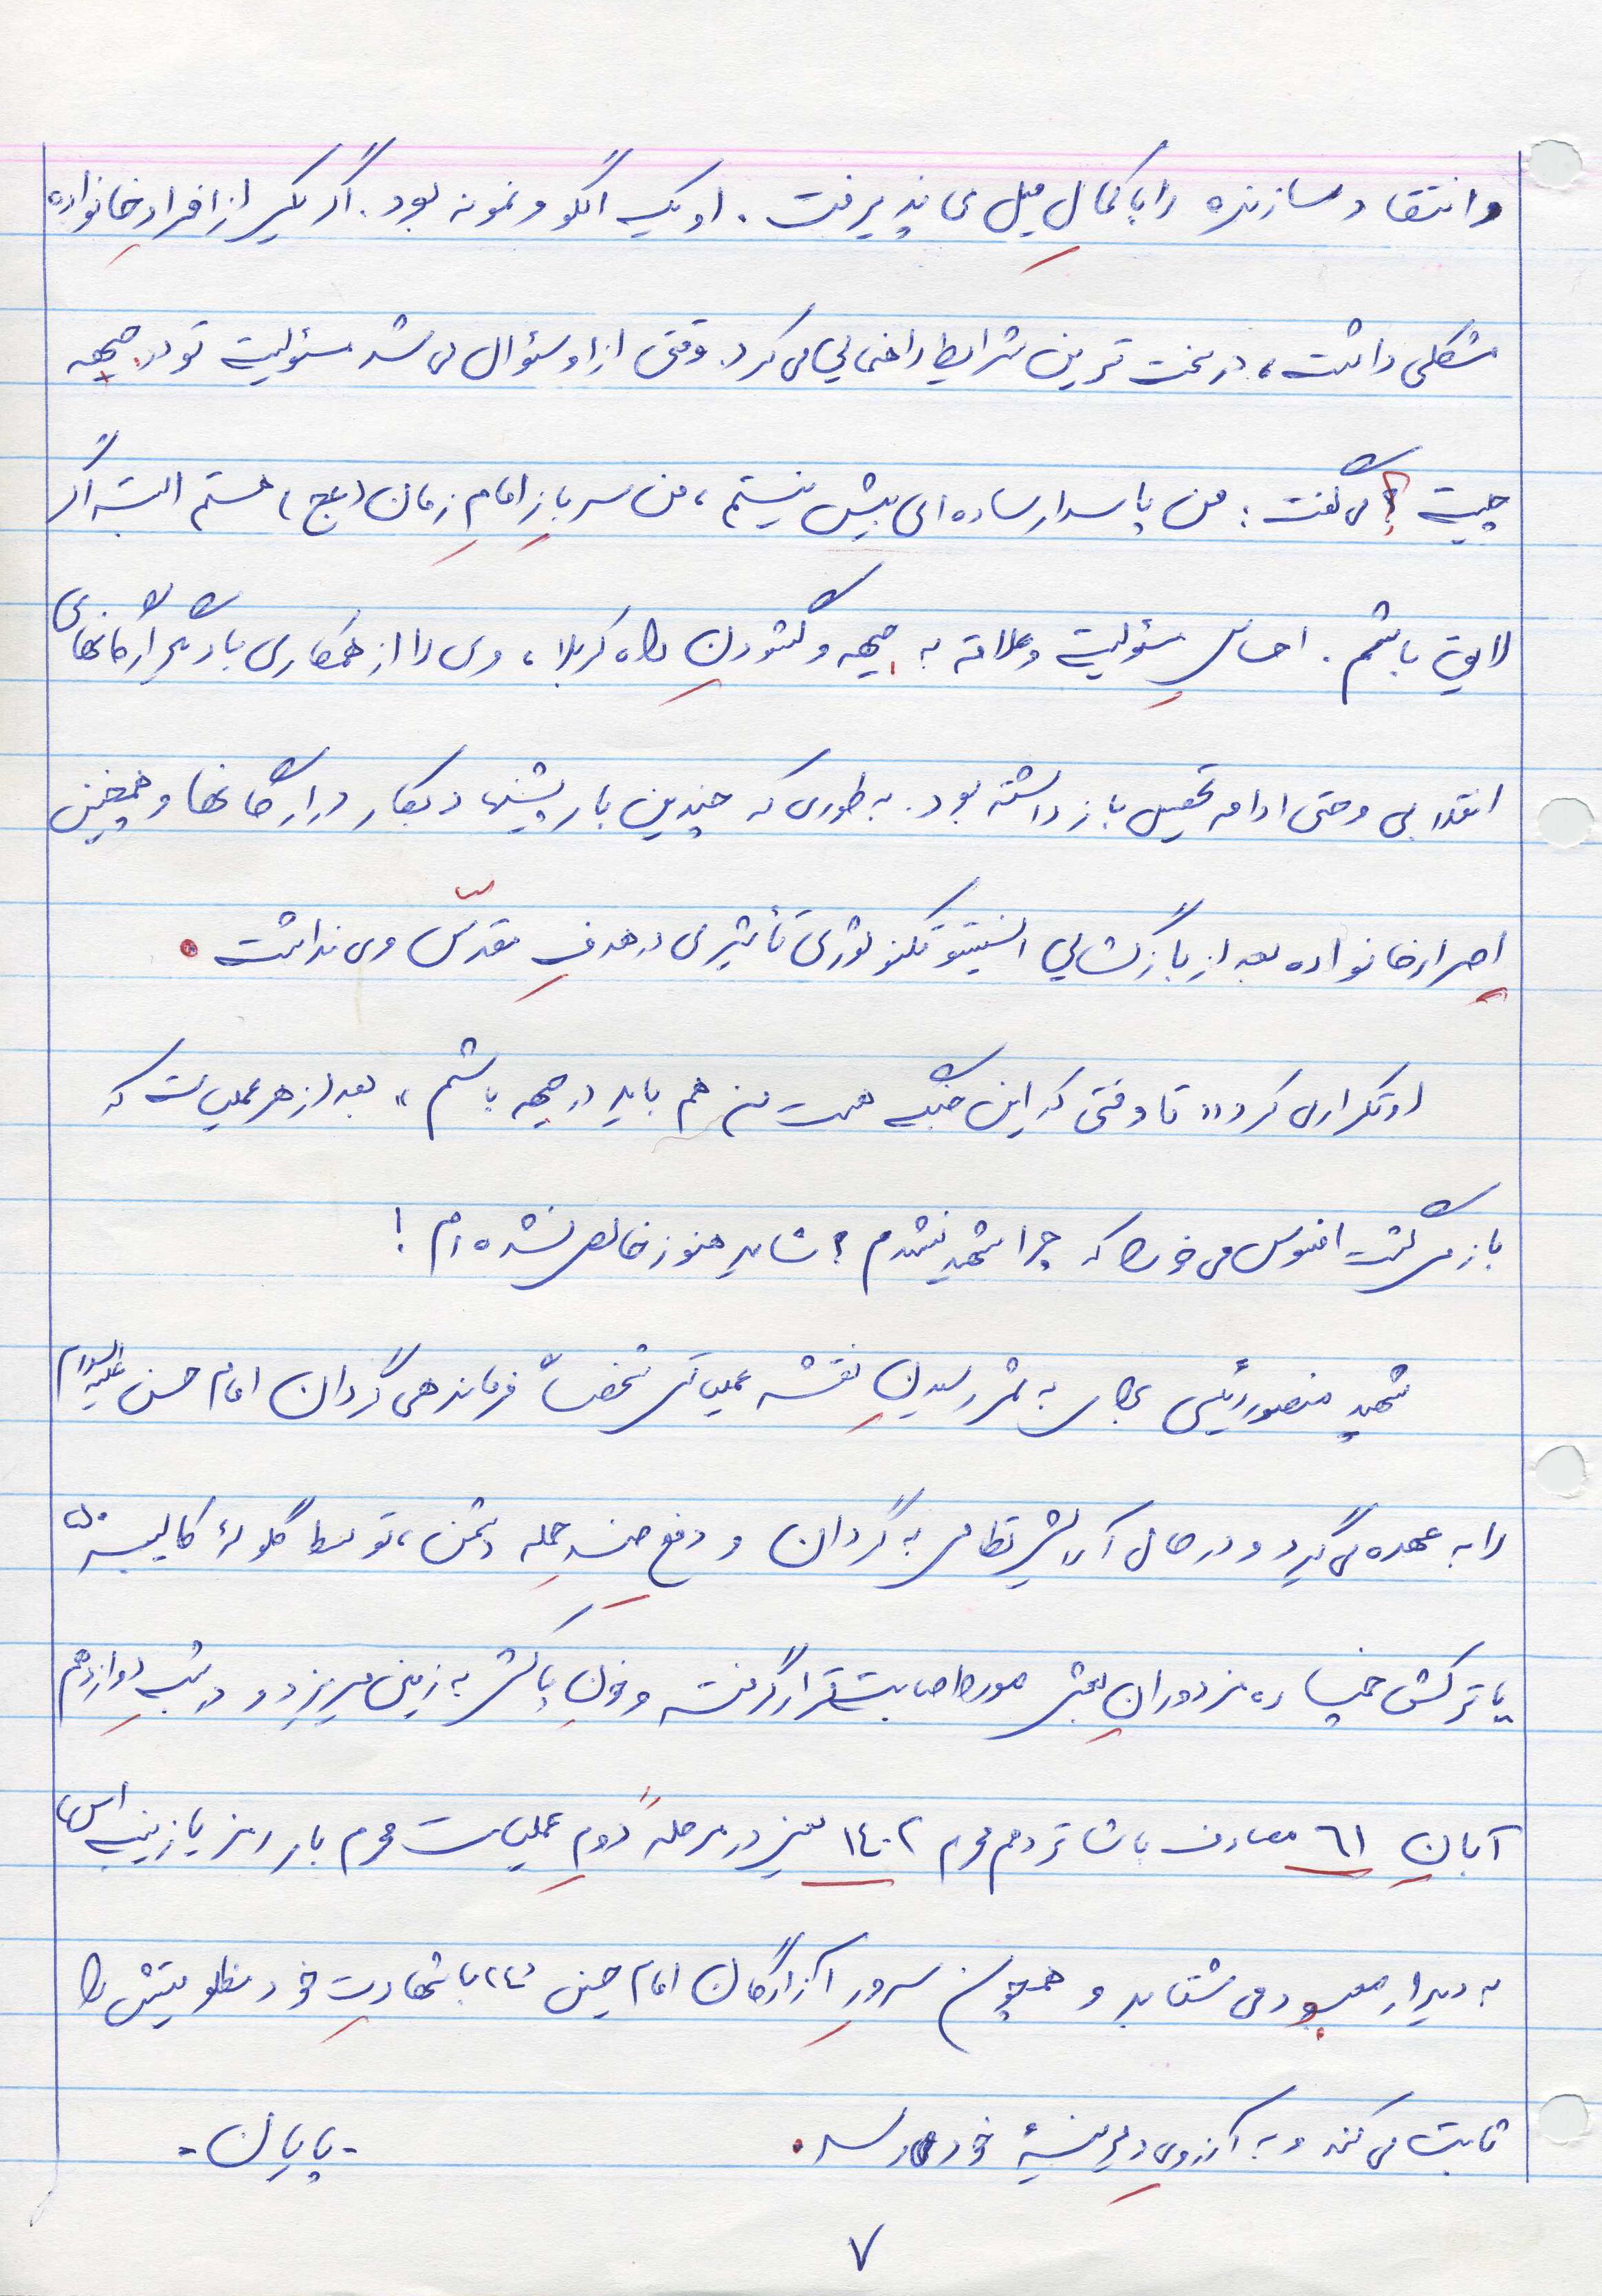 وانتقاد سازنده را با کمالِ میل می پذیرفت . او یک الگو و نمونه بود . اگر یکی از افرادِ خانواده
مشکلی داشت ، در سخت ترین شرایط راهنمایی می کرد . وقتی از او سئوال می شد مسئولیت تو در جبهه
چیست ؟ می گفت : من پاسدار ساده ای بیش نیستم ، من سربازِ امامِ زمان (عج) هستم البته اگر
لایق باشم . احساسِ مسئولیت وعلاقه به جبهه و گشودنِ راه کربلا ، وی را از همکاری با دیگر ارگانهای
انقلابی وحتی ادامه تحصیل باز داشته بود . به طوری که چندین بار پیشنهاد بکار در ارگانها و همچنین
اصرار خانواده بعد از بازگشایی انستیتو تکنولوژی تأثیری در هدفِ مقدّس وی نداشت .
او تکرار می کرد « تا وقتی که این جنگ هست من هم باید در جبهه باشم » بعد از هر عملیات که
باز می گشت افسوس می خورد که چرا شهید نشدم ؟ شاید هنوز خالص نشده ام !
شهید منصور رئیسی برای به ثمر رسیدنِ نقشه عملیاتی شخصاً فرماندهی گردان امام حسن علیه السلام
را به عهده می گیرد و در حال آرایش نظامی به گردان و دفع چند حمله دشمن ، توسط گلولهٔ کالیبر ۵۰
یا ترکش خمپاره مزدورانِ بعثی مورد اصابت قرار گرفته و خونِ پاکش به زمین میریزد و در شبِ دوازدهم
آبانِ ٦١ مصادف با شانزدهم محرم ١٤٠٢ نیز در مرحلهٔ دومِ عملیات محرم با رمز یا زینب (س)
به دیدار معبود می شتابد و همچون سرورِ آزادگان امام حسین «ع» با شهادتِ خود مظلومیتش را
ثابت می کند و به آرزوی دیرینهٔ خود می رسد .
- پایان -
٧